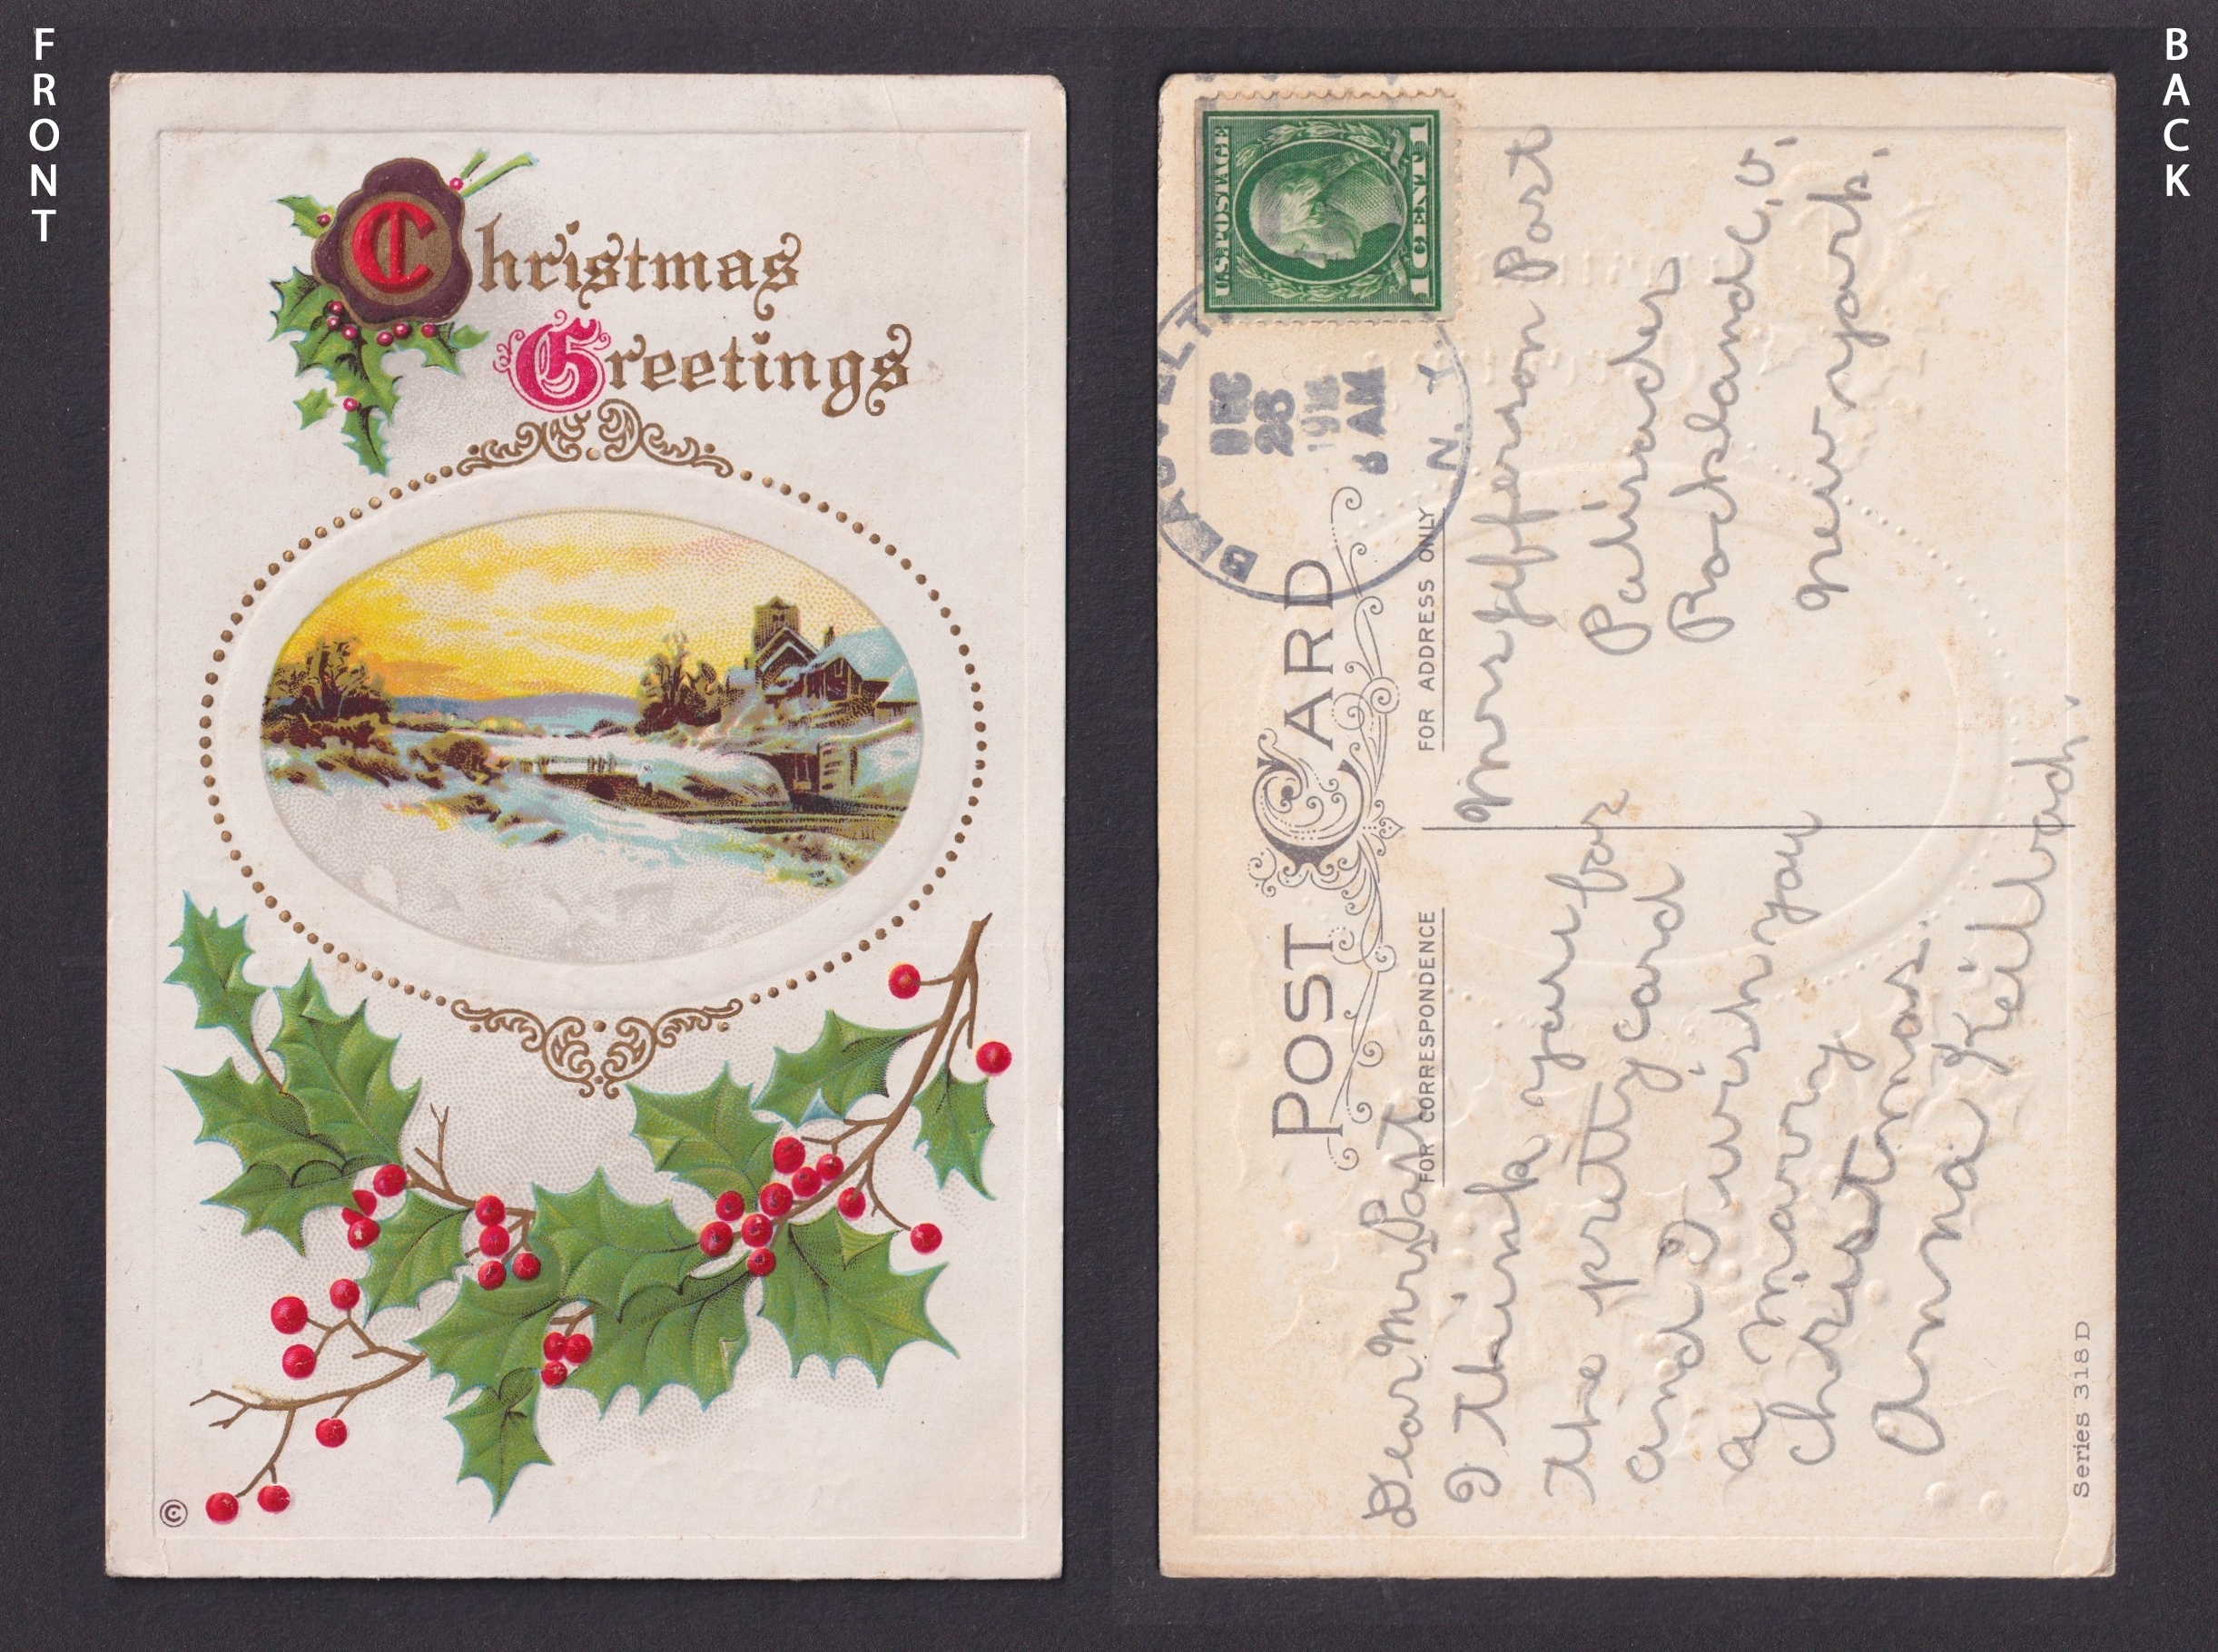 FRONT
Christmas
Greetings
©
BACK
U.S. POSTAGE
1 CENT 1
N. Y.
DEC
28
AM
POST CARD
FOR CORRESPONDENCE
FOR ADDRESS ONLY
Dear Mrs Post
I think you for
the pretty card
and I wish you
a marry
christmas.
Anna Keilbach
Mrs Jefferson Post
Palisades
Rockland C,o.
New york.
Series 318 D